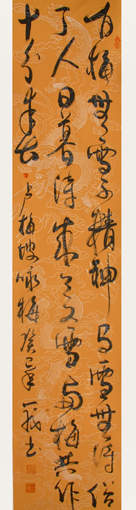 有梅無雪不精神有雪無詩俗
了人日暮詩成天又雪與梅共作
十分春
卢梅坡咏梅癸
书